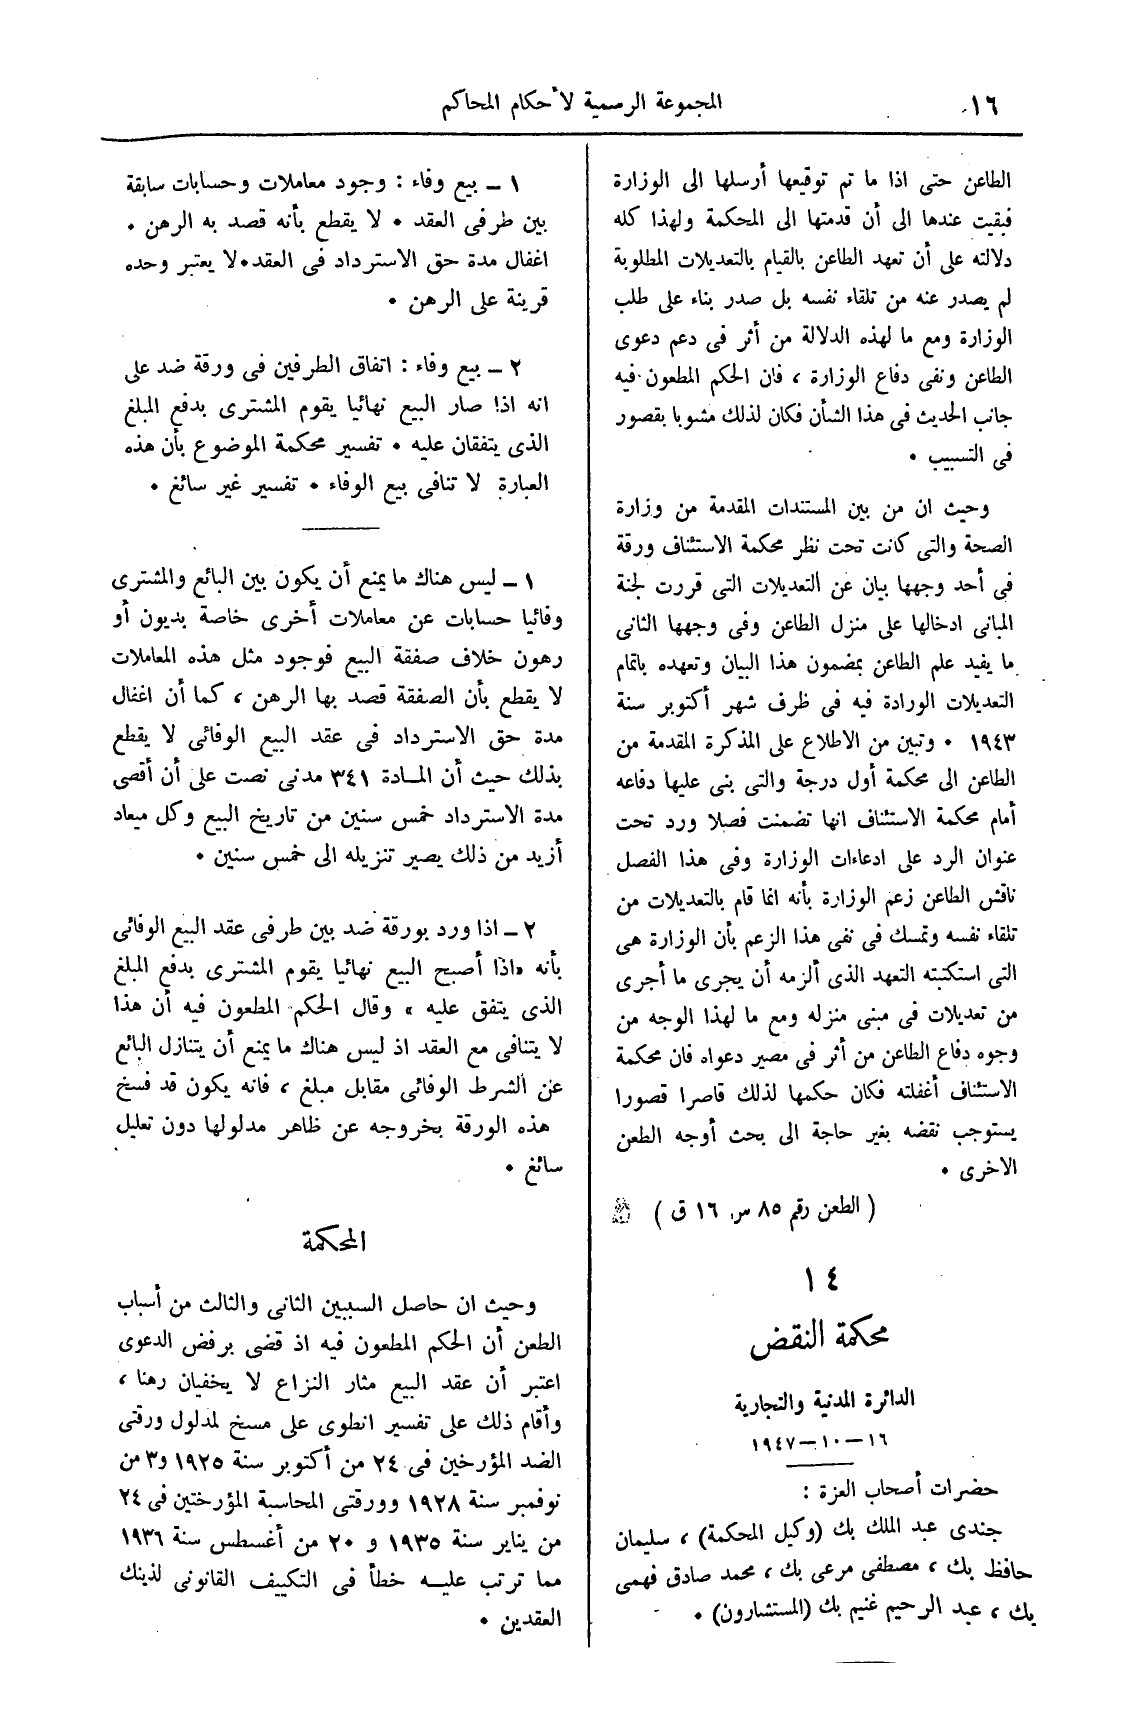 ١٦
المجموعة الرسمية لأحكام المحاكم
الطاعن حتى اذا ما تم توقيعها أرسلها الى الوزارة
فبقيت عندها الى أن قدمتها الى المحكمة ولهذا كله
دلالته على أن تعهد الطاعن بالقيام بالتعديلات المطلوبة
لم يصدر عنه من تلقاء نفسه بل صدر بناء على طلب
الوزارة ومع ما لهذه الدلالة من أثر فى دعم دعوى
الطاعن ونفى دفاع الوزارة ، فان الحكم المطعون فيه
جانب الحديث فى هذا الشأن فكان لذلك مشوبا بقصور
فى التسبيب .
وحيث ان من بين المستندات المقدمة من وزارة
الصحة والتى كانت تحت نظر محكمة الاستئناف ورقة
فى أحد وجهها بيان عن التعديلات التى قررت لجنة
المبانى ادخالها على منزل الطاعن وفى وجهها الثانى
ما يفيد علم الطاعن بمضمون هذا البيان وتعهده باتمام
التعديلات الورادة فيه فى ظرف شهر أكتوبر سنة
١٩٤٣ . وتبين من الاطلاع على المذكرة المقدمة من
الطاعن الى محكمة أول درجة والتى بنى عليها دفاعه
أمام محكمة الاستئناف انها تضمنت فصلا ورد تحت
عنوان الرد على ادعاءات الوزارة وفى هذا الفصل
ناقش الطاعن زعم الوزارة بأنه انما قام بالتعديلات من
تلقاء نفسه وتمسك فى نفى هذا الزعم بأن الوزارة هى
التى استكتبته التعهد الذى ألزمه أن يجرى ما أجرى
من تعديلات فى مبنى منزله ومع ما لهذا الوجه من
وجوه دفاع الطاعن من أثر فى مصير دعواه فان محكمة
الاستئناف أغفلته فكان حكمها لذلك قاصرا قصورا
يستوجب نقضه بغير حاجة الى بحث أوجه الطعن
الاخرى .
( الطعن رقم ٨٥ س ١٦ ق )
١٤
محكمة النقض
الدائرة المدنية والتجارية
١٦-١٠-١٩٤٧
حضرات أصحاب العزة :
جندى عبد الملك بك (وكيل المحكمة) ، سليمان
حافظ بك ، مصطفى مرعى بك ، محمد صادق فهمى
بك ، عبد الرحيم غنيم بك (المستشارون) .
١ - بيع وفاء : وجود معاملات وحسابات سابقة
بين طرفى العقد . لا يقطع بأنه قصد به الرهن .
اغفال مدة حق الاسترداد فى العقد . لا يعتبر وحده
قرينة على الرهن .
٢ - بيع وفاء : اتفاق الطرفين فى ورقة ضد على
انه اذا صار البيع نهائيا يقوم المشترى بدفع المبلغ
الذى يتفقان عليه . تفسير محكمة الموضوع بأن هذه
العبارة لا تنافى بيع الوفاء . تفسير غير سائغ .
١ - ليس هناك ما يمنع أن يكون بين البائع والمشترى
وفائيا حسابات عن معاملات أخرى خاصة بديون أو
رهون خلاف صفقة البيع فوجود مثل هذه المعاملات
لا يقطع بأن الصفقة قصد بها الرهن ، كما أن اغفال
مدة حق الاسترداد فى عقد البيع الوفائى لا يقطع
بذلك حيث أن المادة ٣٤١ مدنى نصت على أن أقصى
مدة الاسترداد خمس سنين من تاريخ البيع وكل ميعاد
أزيد من ذلك يصير تنزيله الى خمس سنين .
٢ - اذا ورد بورقة ضد بين طرفى عقد البيع الوفائى
بأنه «اذا أصبح البيع نهائيا يقوم المشترى بدفع المبلغ
الذى يتفق عليه » وقال الحكم المطعون فيه أن هذا
لا يتنافى مع العقد اذ ليس هناك ما يمنع أن يتنازل البائع
عن الشرط الوفائى مقابل مبلغ ، فانه يكون قد فسخ
هذه الورقة بخروجه عن ظاهر مدلولها دون تعليل
سائغ .
المحكمة
وحيث ان حاصل السببين الثانى والثالث من أسباب
الطعن أن الحكم المطعون فيه اذ قضى برفض الدعوى
اعتبر أن عقد البيع مثار النزاع لا يخفيان رهنا ،
وأقام ذلك على تفسير انطوى على مسخ لمدلول ورقتى
الضد المؤرخين فى ٢٤ من أكتوبر سنة ١٩٢٥ و٣ من
نوفمبر سنة ١٩٢٨ وورقتى المحاسبة المؤرختين فى ٢٤
من يناير سنة ١٩٣٥ و ٢٠ من أغسطس سنة ١٩٣٦
مما ترتب عليه خطأ فى التكييف القانونى لذينك
العقدين .